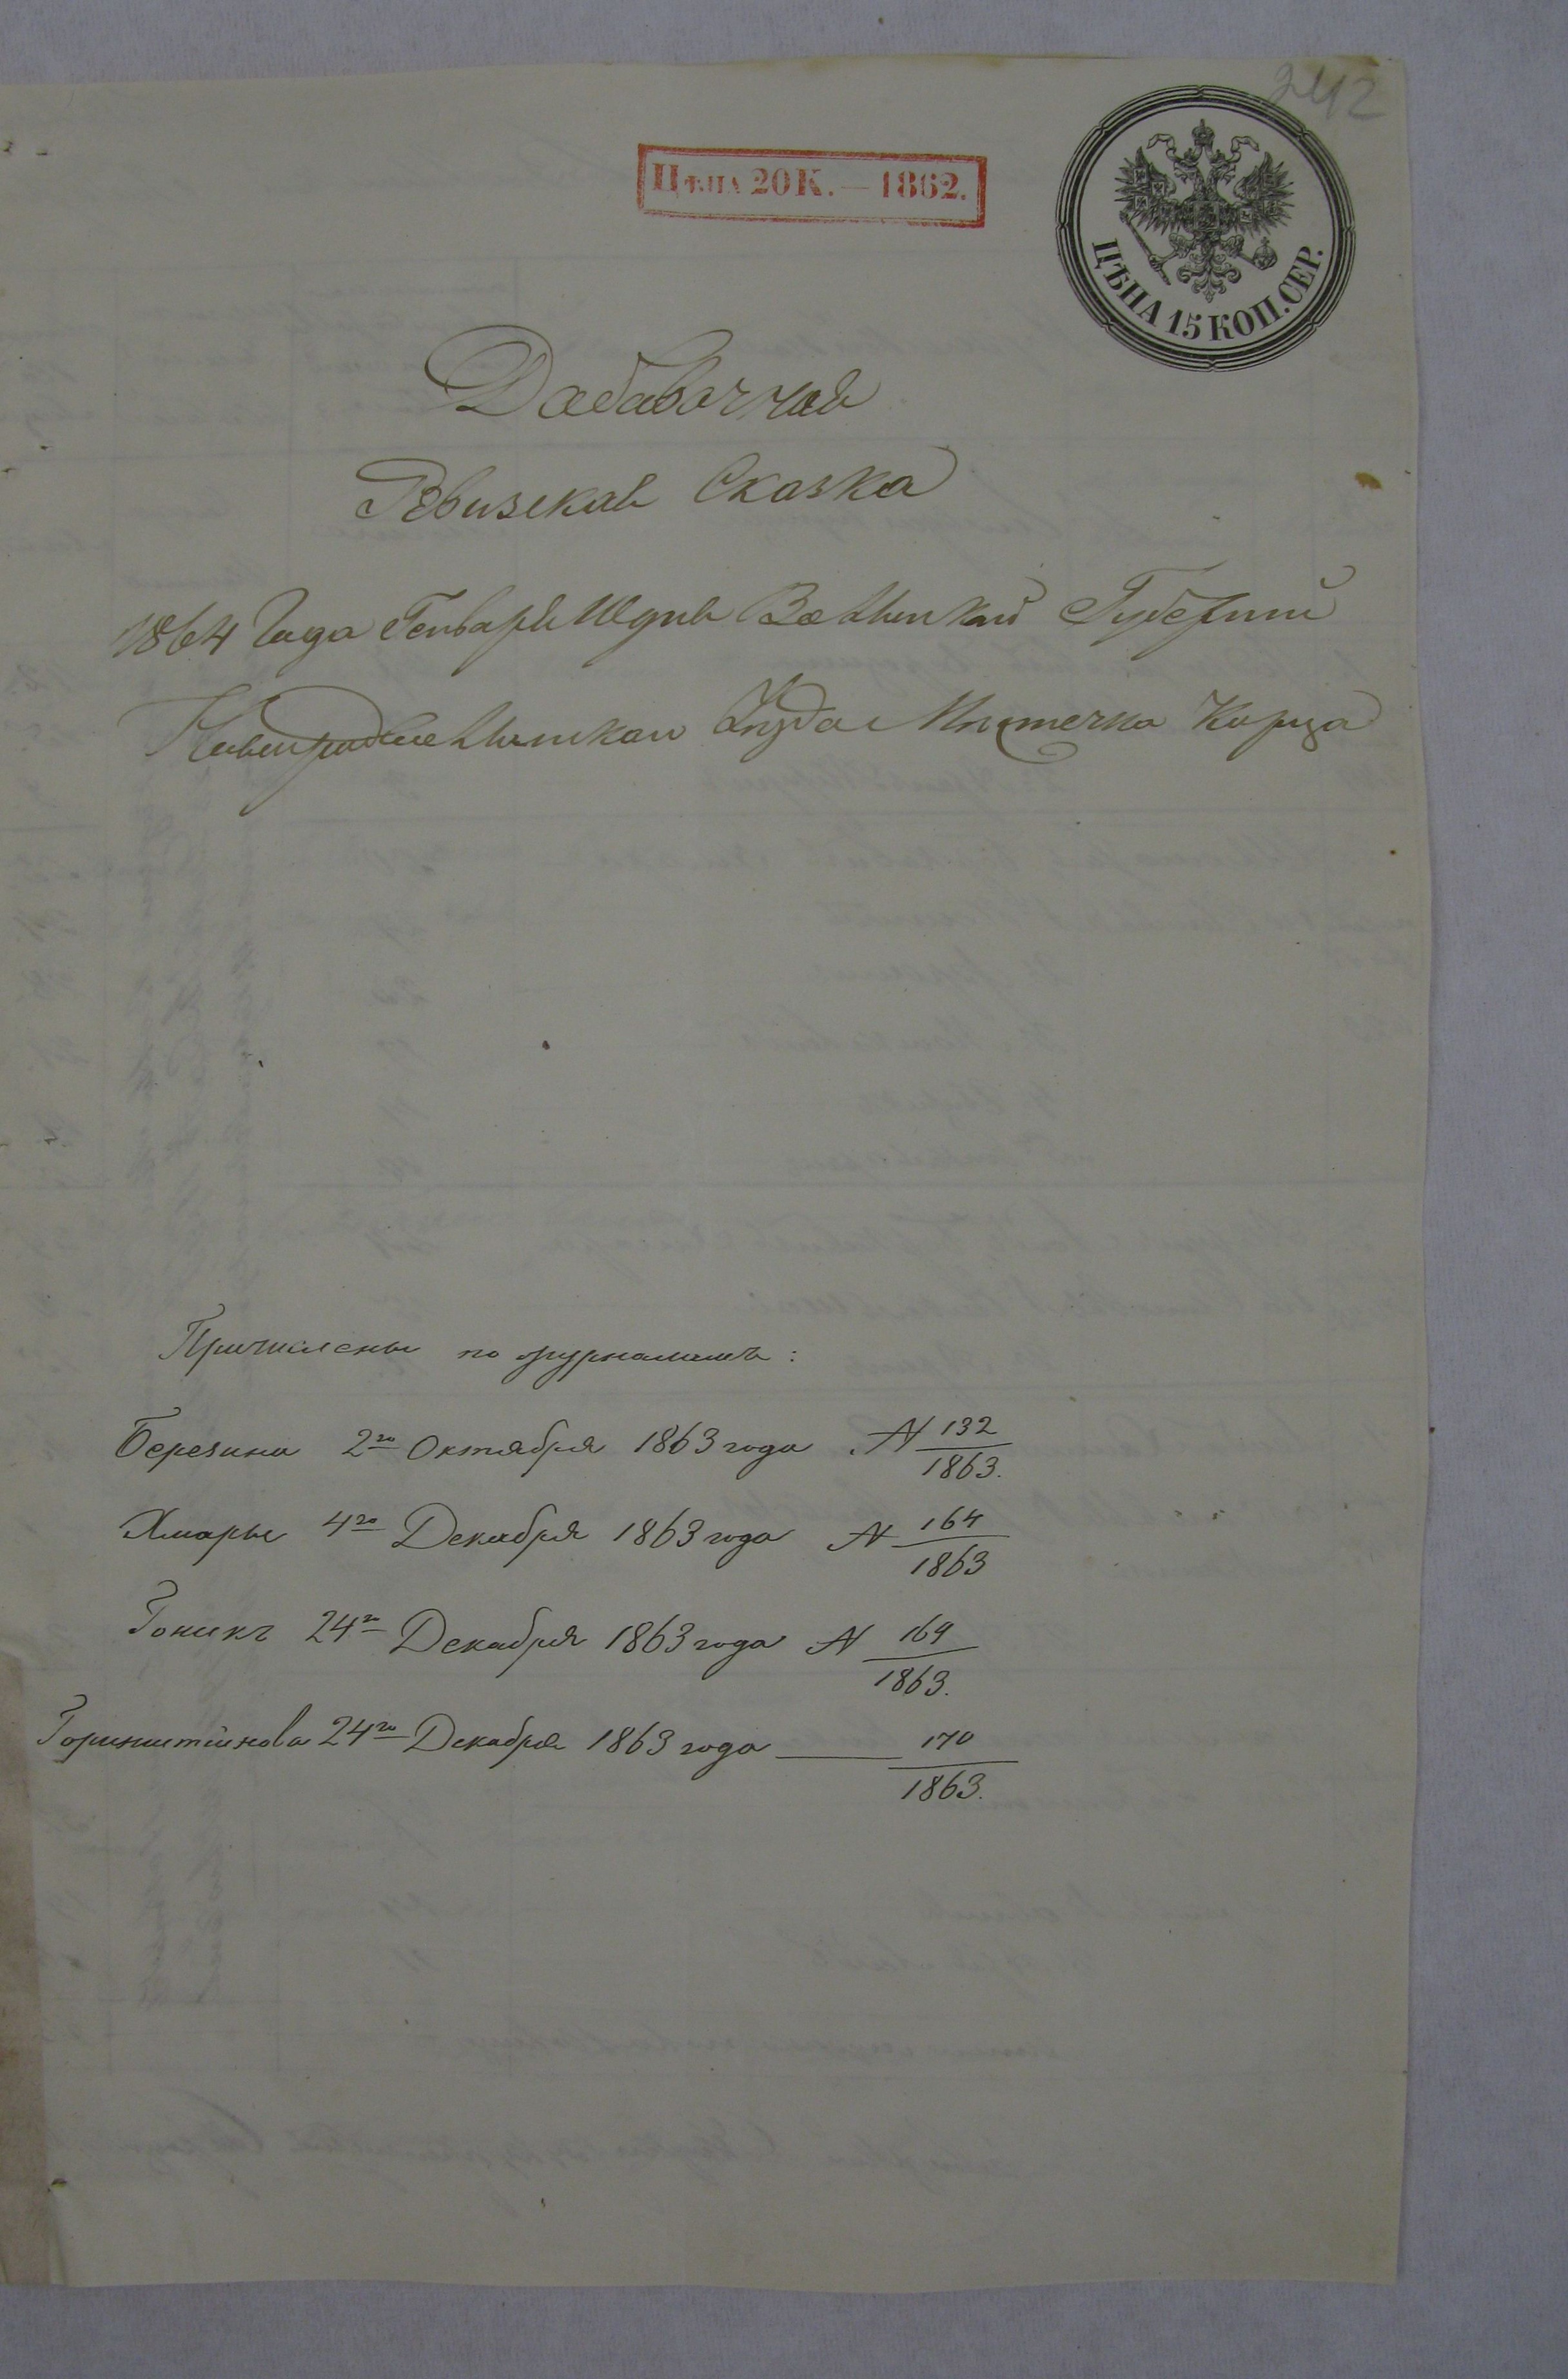 242
ЦѢНА 20 К. — 1862.
ЦѢНА 15 КОП. СЕР.
Дабавочная
Ревизская Сказка
1864 Года Генваря дня Валынской Губернии
Новоградволынскаго Уезда Местечка Корца
Причислены по журналамъ:
Березина 2го Октября 1863 года N 132/1863.
Хмары 4го Декабря 1863 года N 164/1863
Гоникъ 24го Декабря 1863 года N 169/1863.
Горинштейнова 24го Декабря 1863 года — 170/1863.